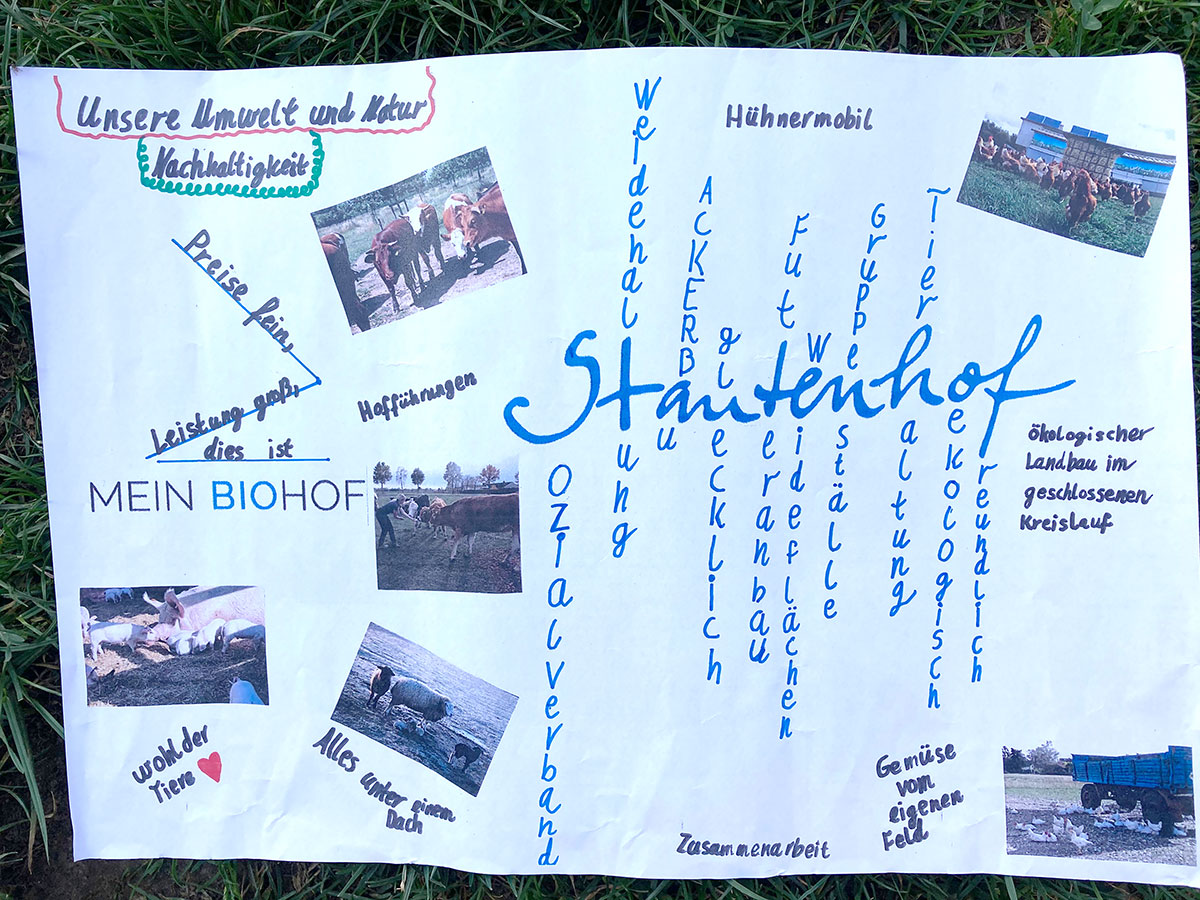 Unsere Umwelt und Natur
Nachhaltigkeit
Preise fein,
Leistung groß,
dies ist
MEIN BIOHOF
Hofführungen
Wohl der
Tiere
Alles unter einem
Dach
Stautenhof
Sozialverband
Weidehaltung
ACKERBau
gluecklich
Futteranbau
Weideflächen
Gruppenställe
Tierhaltung
oekologisch
freundlich
Hühnermobil
ökologischer
Landbau im
geschlossenen
Kreislauf
Gemüse
vom
eigenen
Feld
Zusammenarbeit